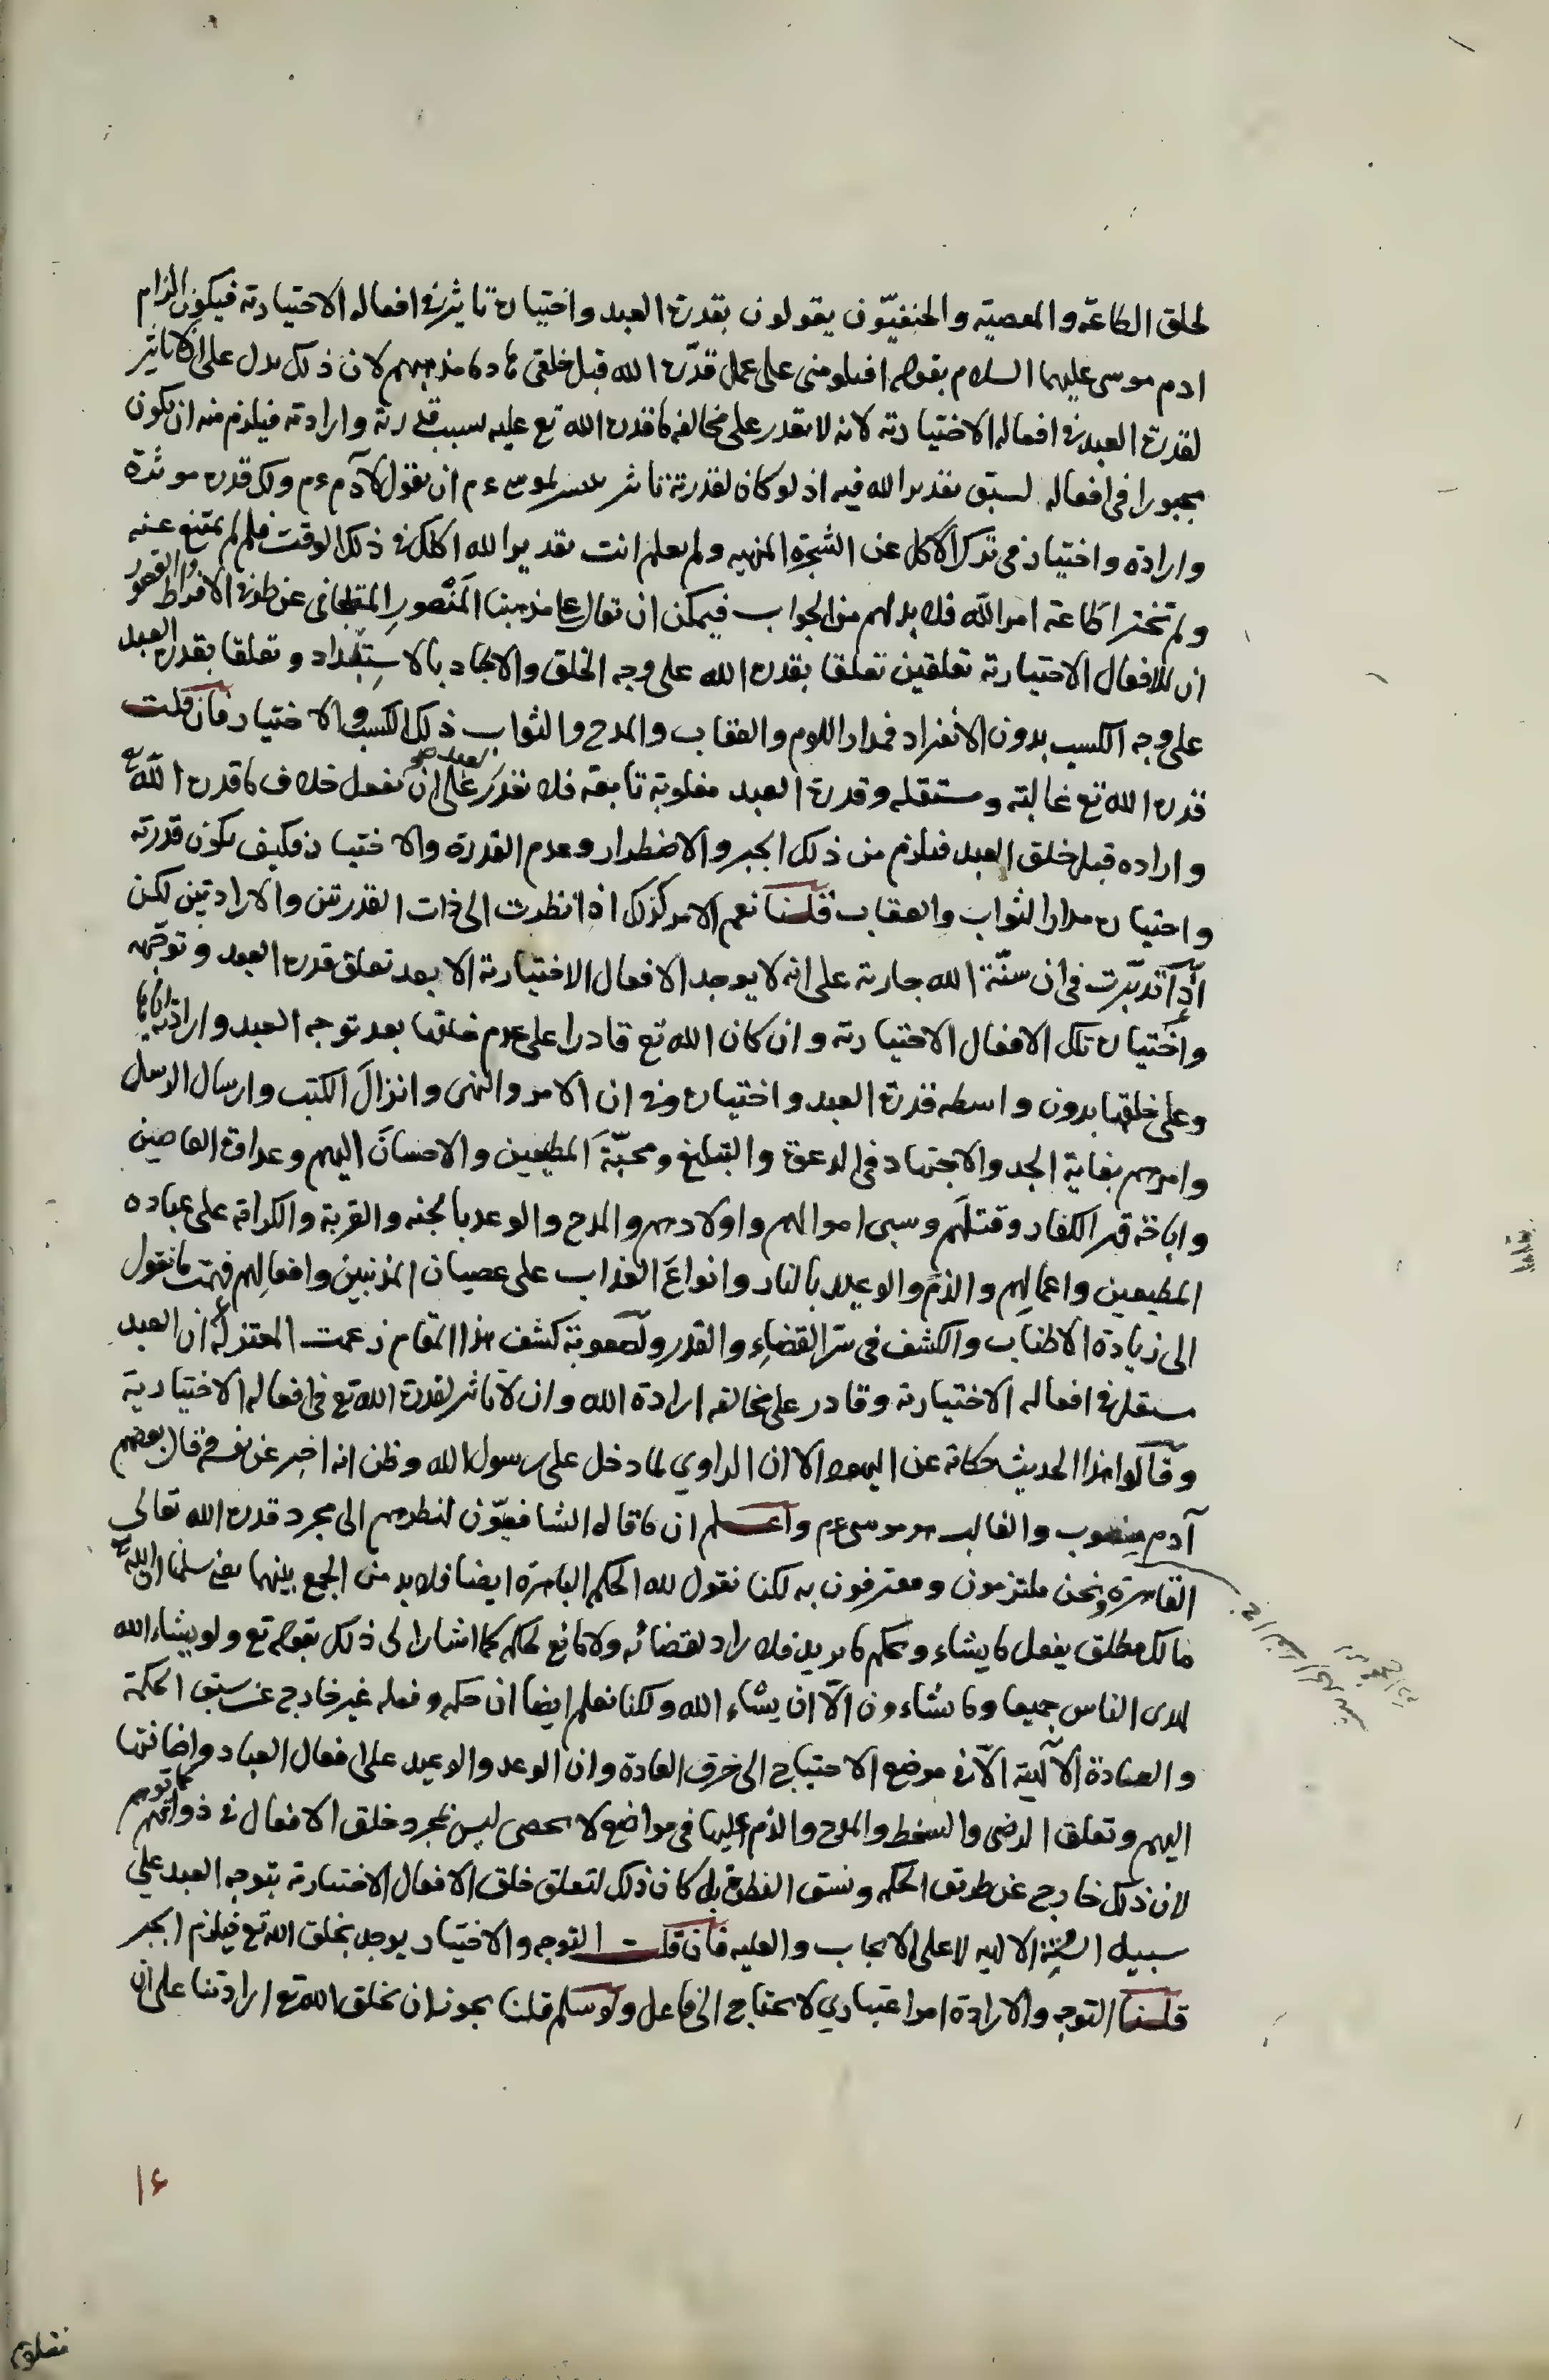 لخلق الطاعة والمعصية والحنفيّون يقولون بقدرة العبد واختياره تأثير في افعاله الاختيارية فيكون الزام
ادم موسى عليهما السلام بقوله افتلومني على عمل قدّره الله قبل خلقي هادما مذهبهم لان ذلك يدل على ان لا تأثير
لقدرة العبد في افعاله الاختيارية لانه لا يقدر على مخالفة ما قدره الله تع عليه بسبب قدرته وارادته فيلزم منه ان يكون
مجبورا في افعاله لسبق تقدير الله فيه اذ لو كان لقدرته تاثير لموسى ءم ان يقول لآدم ءم ولك قدرة موثرة
وارادة واختيار في ترك الاكل عن الشجرة المنهيه ولم يعلم انت تقدير الله اكلك في ذلك الوقت فلم لم تمتنع عنه
ولم تختر اطاعة امر الله فلا بد لهم من الجواب فيمكن ان يقال على مذهبنا المنصور المتجافي عن طرفي الافراط والقصور
ان للافعال الاختيارية تعلقين تعلقا بقدرة الله على وجه الخلق والايجاد بالاستبداد وتعلقا بقدرة العبد
على وجه الكسب بدون الانفراد فمدار اللوم والعقاب والمدح والثواب ذلك الكسب والاختيار فان قلت
قدرة الله تع غالبة ومستقلة وقدرة العبد مغلوبة تابعة فلا يقدر العبد على ان يفعل خلاف ما قدره الله تع
واراده قبل خلق العبد فيلزم من ذلك الجبر والاضطرار وعدم القدرة والاختيار فكيف يكون قدرته
واختياره مدار الثواب والعقاب قلنا نعم الامر كذلك اذا نظرت الى ذات القدرتين والارادتين لكن
اذا تدبّرت في ان سنّة الله جارية على انه لا يوجد الافعال الاختيارية الا بعد تعلق قدرة العبد وتوجّهه
واختياره تلك الافعال الاختيارية وان كان الله تع قادرا على عدم خلقها بعد توجه العبد وارادته اياها
وعلى خلقها بدون واسطة قدرة العبد واختياره وفي ان الامر والنهى وانزال الكتب وارسال الرسل
وامرهم بغاية الجد والاجتهاد في الدعوة والتبليغ ومحبّة المطيعين والاحسان اليهم وعداوة العاصين
واباحة قهر الكفار وقتلهم وسبى اموالهم واولادهم والمدح والوعد بالجنة والقربة والكرامة على عباده
المطيعين واعمالهم والذم والوعيد بالنار وانواع العذاب على عصيان المذنبين وافعالهم فهمت ما نقول
الى زيادة الاطناب والكشف في سرّ القضاء والقدر ولصعوبة كشف هذا المقام زعمت المعتزلة ان العبد
مستقل في افعاله الاختيارية وقادر على مخالفة ارادة الله وان لا تاثير لقدرة الله تع في افعاله الاختيارية
وقالوا هذا الحديث حكاية عن اليهود الا ان الراوي لما دخل على رسول الله وظن انه اخبر عن نفسه فقال بعضهم
آدم منصوب والغالب هو موسى ءم واعلم ان ما قاله الشافعيّون لنظرهم الى مجرد قدرة الله تعالى
القاهرة ونحن ملتزمون ومعترفون به لكنا نقول لله الحكم الباهرة ايضا فلا بد من الجمع بينهما يعني سلمنا ان الله تع
مالك مطلق يفعل ما يشاء ويحكم ما يريد فلا راد لقضائه ولا مانع لحكمه كما اشار الى ذلك بقوله تع ولو يشاء الله
لهدى الناس جميعا وما تشاءون الّا ان يشاء الله ولكنا نعلم ايضا ان حكمه وفعله غير خارج عن سبق الحكمة
والعادة الالٓهية الّا في موضع الاحتياج الى خرق العادة وان الوعد والوعيد على افعال العباد واضافتها
اليهم وتعلق الرضى والسخط والمدح والذم عليها في مواضع لا تحصى ليس لمجرد خلق الافعال في ذواتهم كما توهم
لان ذلك خارج عن طريق الحكمة ونسق الفطرة بل كان ذلك لتعلق خلق الافعال الاختيارية بتوجه العبد على
سبيل السنّة الالهيه لا على الايجاب والعليه فان قلت التوجه والاختيار يوجد بخلق الله تع فيلزم الجبر
قلنا التوجه والارادة امر اعتباري لا يحتاج الى فاعل ولو سلم قلنا يجوز ان يخلق الله تع ارادتنا على ان
١٤